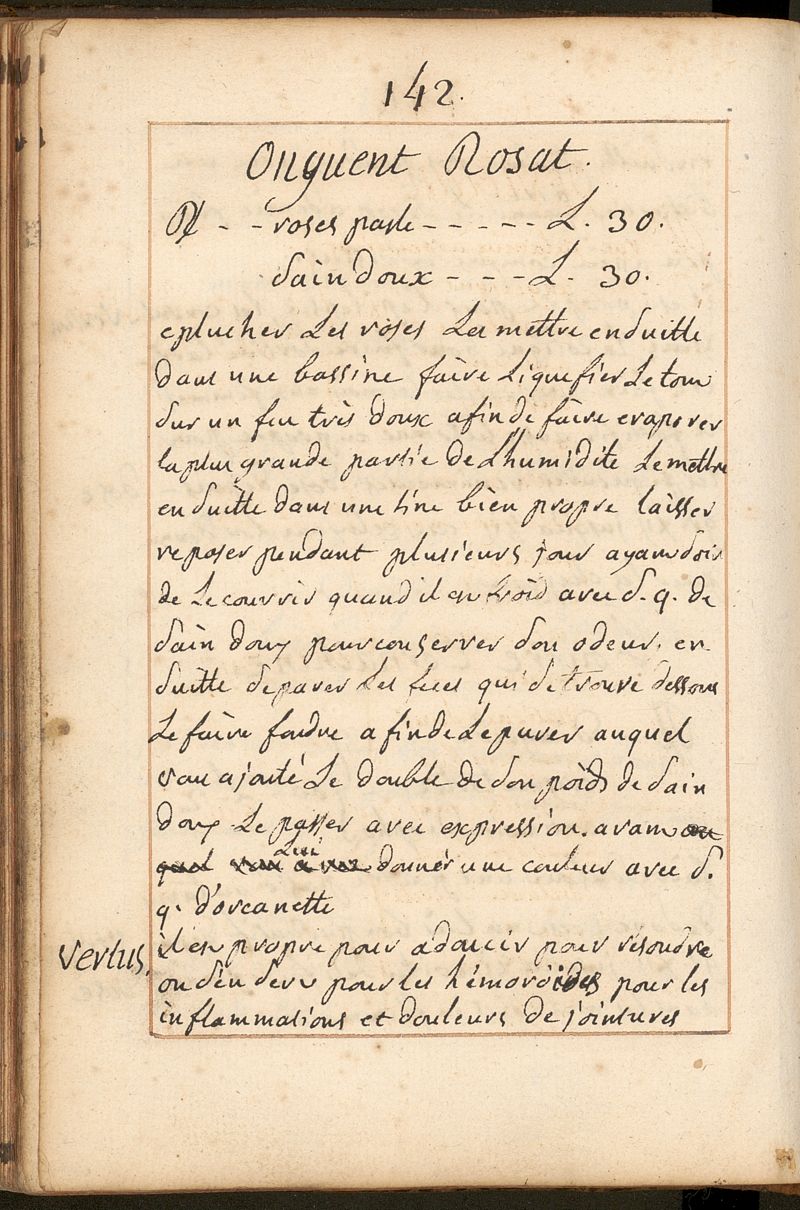 142.
Onguent Rosat.
℞ - - roses pasle - - - - - L. 30.
sain doux - - - L. 30.
eplucher Les roses Les mettre ensuitte
dans une bassine faire Liquefier Le tout
sur un feu très doux afin de faire evaporer
la plus grande partie de L'humidite Le mettre
ensuitte dans une tine bien propre laisser
reposer pendant plusieurs jour ayant soin
de Le couvrir quand il est froid avec s. q. de
sain doux pour conserver son odeur. en
suitte separer Les feces qui se trouve dessous
Le faire fondre afin de Lepurer auquel
vous ajouté Le double de son poids de sain
doux Le passer avec expression. avant au
quel vous Lui avez donner une couleur avec s.
q. d'orcanette
Vertus. il est propre pour adoucir pour resoudre
on s'en sert pour les hémoroïdes pour les
inflammations et douleurs de jointures